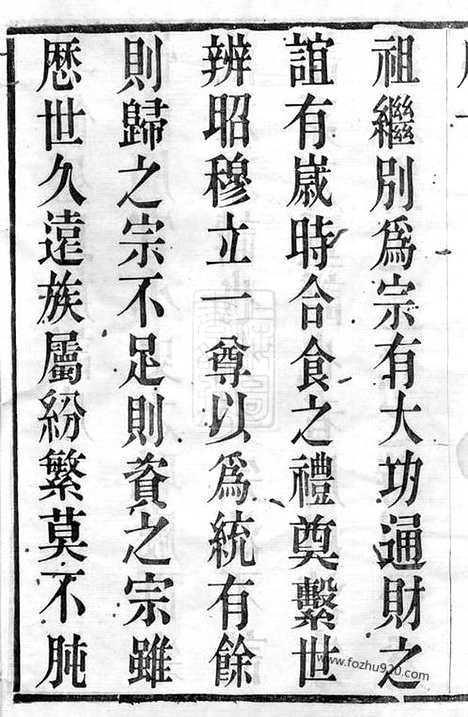 祖繼別爲宗有大功通財之
誼有歲時合食之禮奠繫世
辨昭穆立一尊以爲統有餘
則歸之宗不足則資之宗雖
歷世久遠族屬紛繁莫不肫
www.fozhu920.com